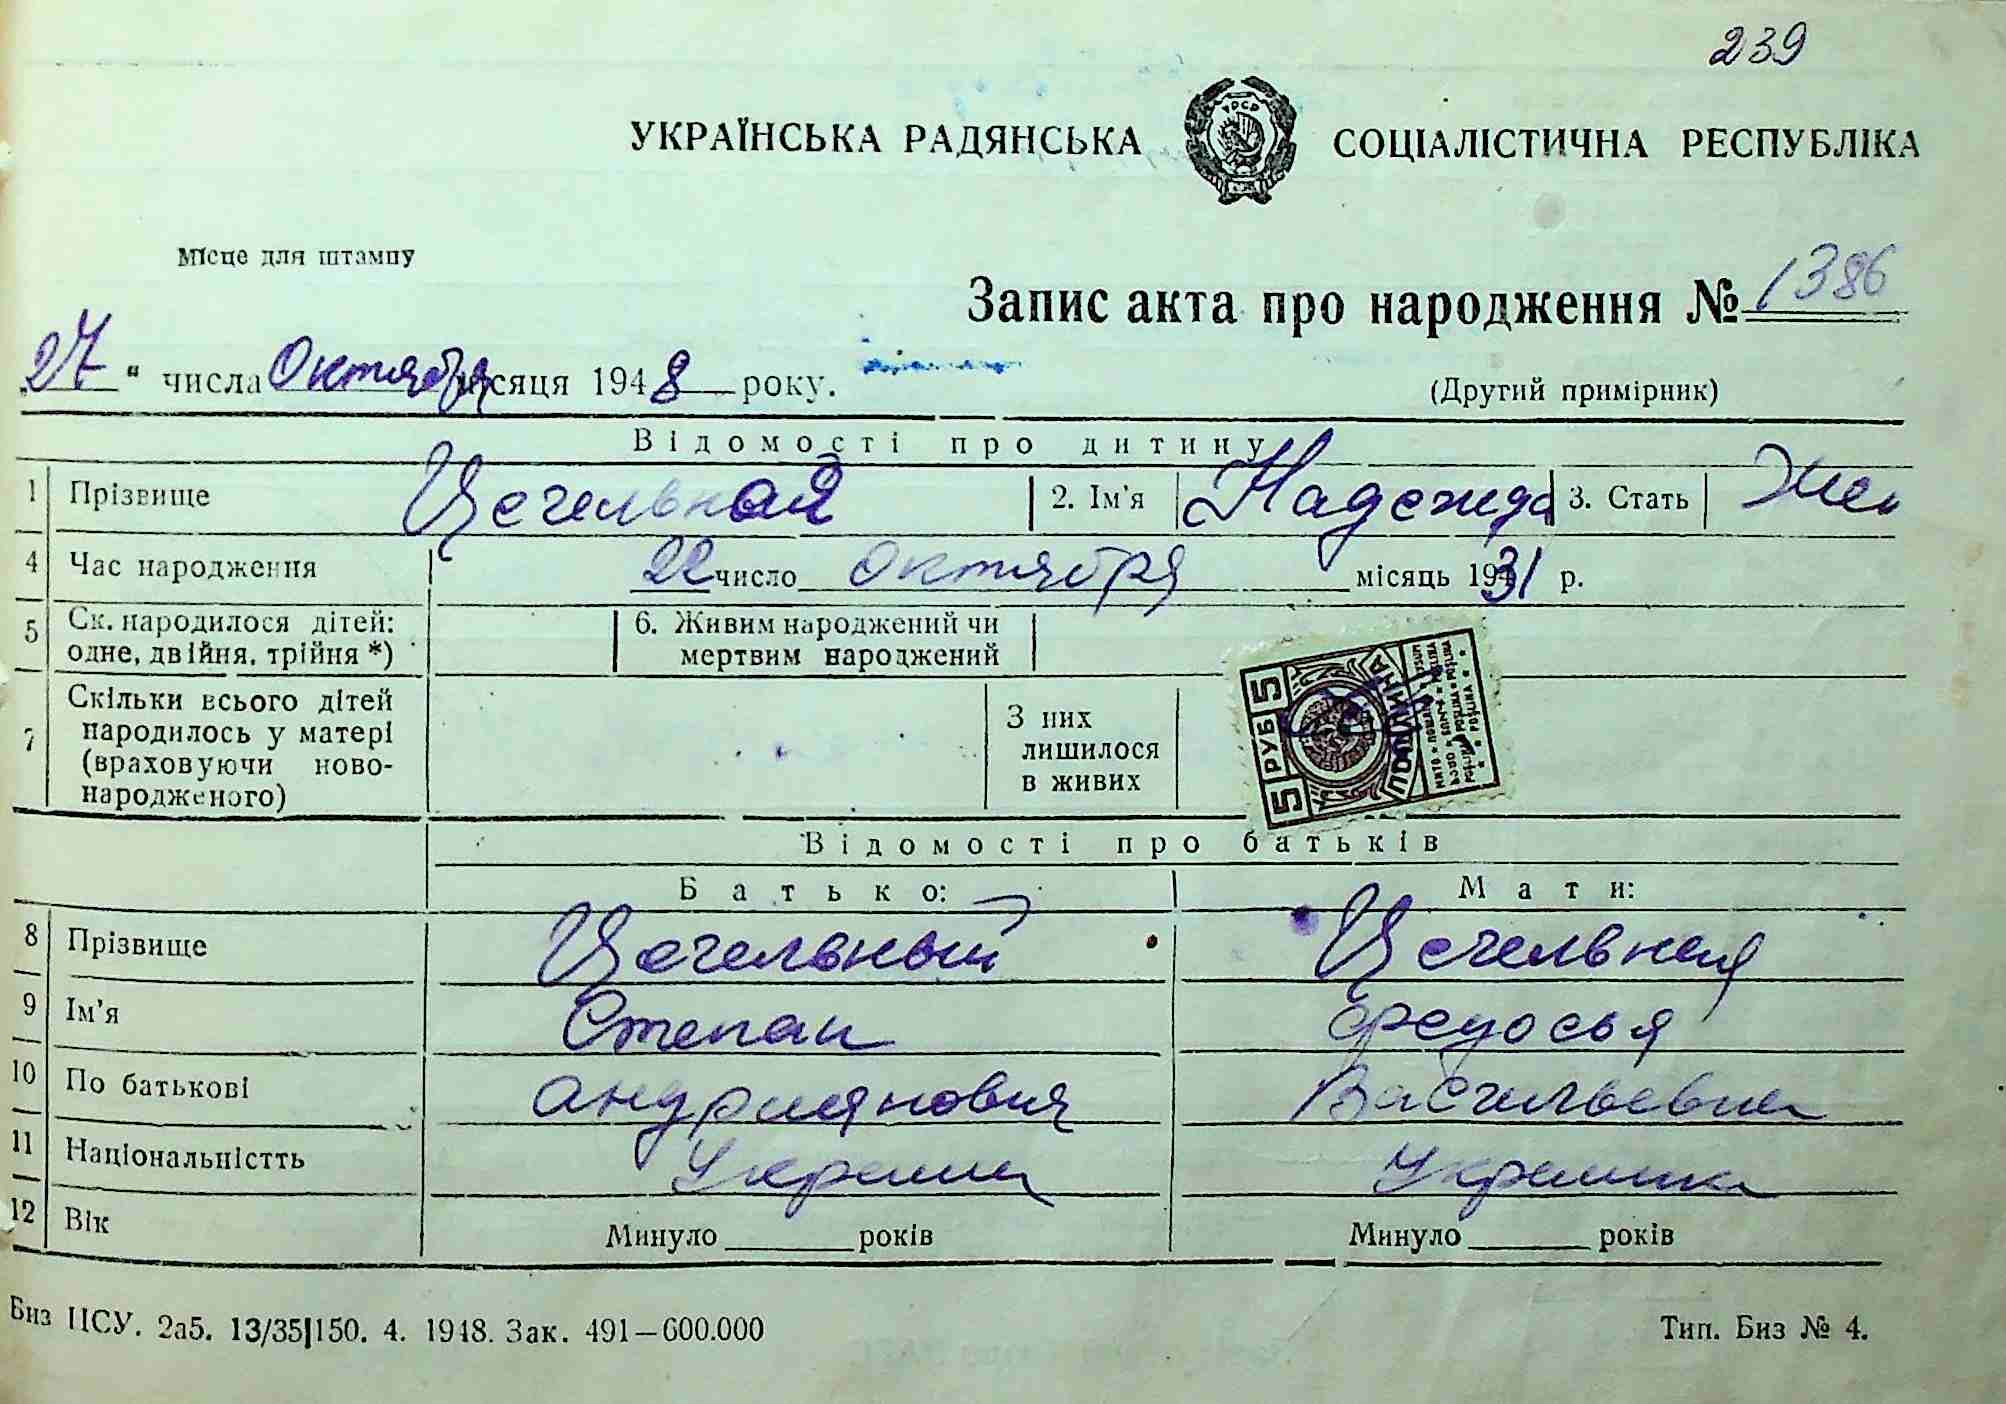 239
УКРАЇНСЬКА РАДЯНСЬКА СОЦІАЛІСТИЧНА РЕСПУБЛІКА
Місце для штампу
Запис акта про народження № 1386
„27“ числа Октября місяця 1948 року.
(Другий примірник)
Відомості про дитину
1 Прізвище Цегельная 2. Ім'я Надежда 3. Стать Жен
4 Час народження 22 число октября місяць 1931 р.
5 Ск. народилося дітей: одне, двійня, трійня *) 6. Живим народжений чи мертвим народжений
7 Скільки всього дітей народилось у матері (враховуючи ново-народженого) З них лишилося в живих
5 РУБ 5
ПОШЛИНА
Відомості про батьків
Батько: Мати:
8 Прізвище Цегельный Цегельная
9 Ім'я Степан Федосья
10 По батькові Андриянович Васильевна
11 Національністть Украин Украинка
12 Вік Минуло років Минуло років
Биз ЦСУ. 2а5. 13/35|150. 4. 1948. Зак. 491—600.000
Тип. Биз № 4.